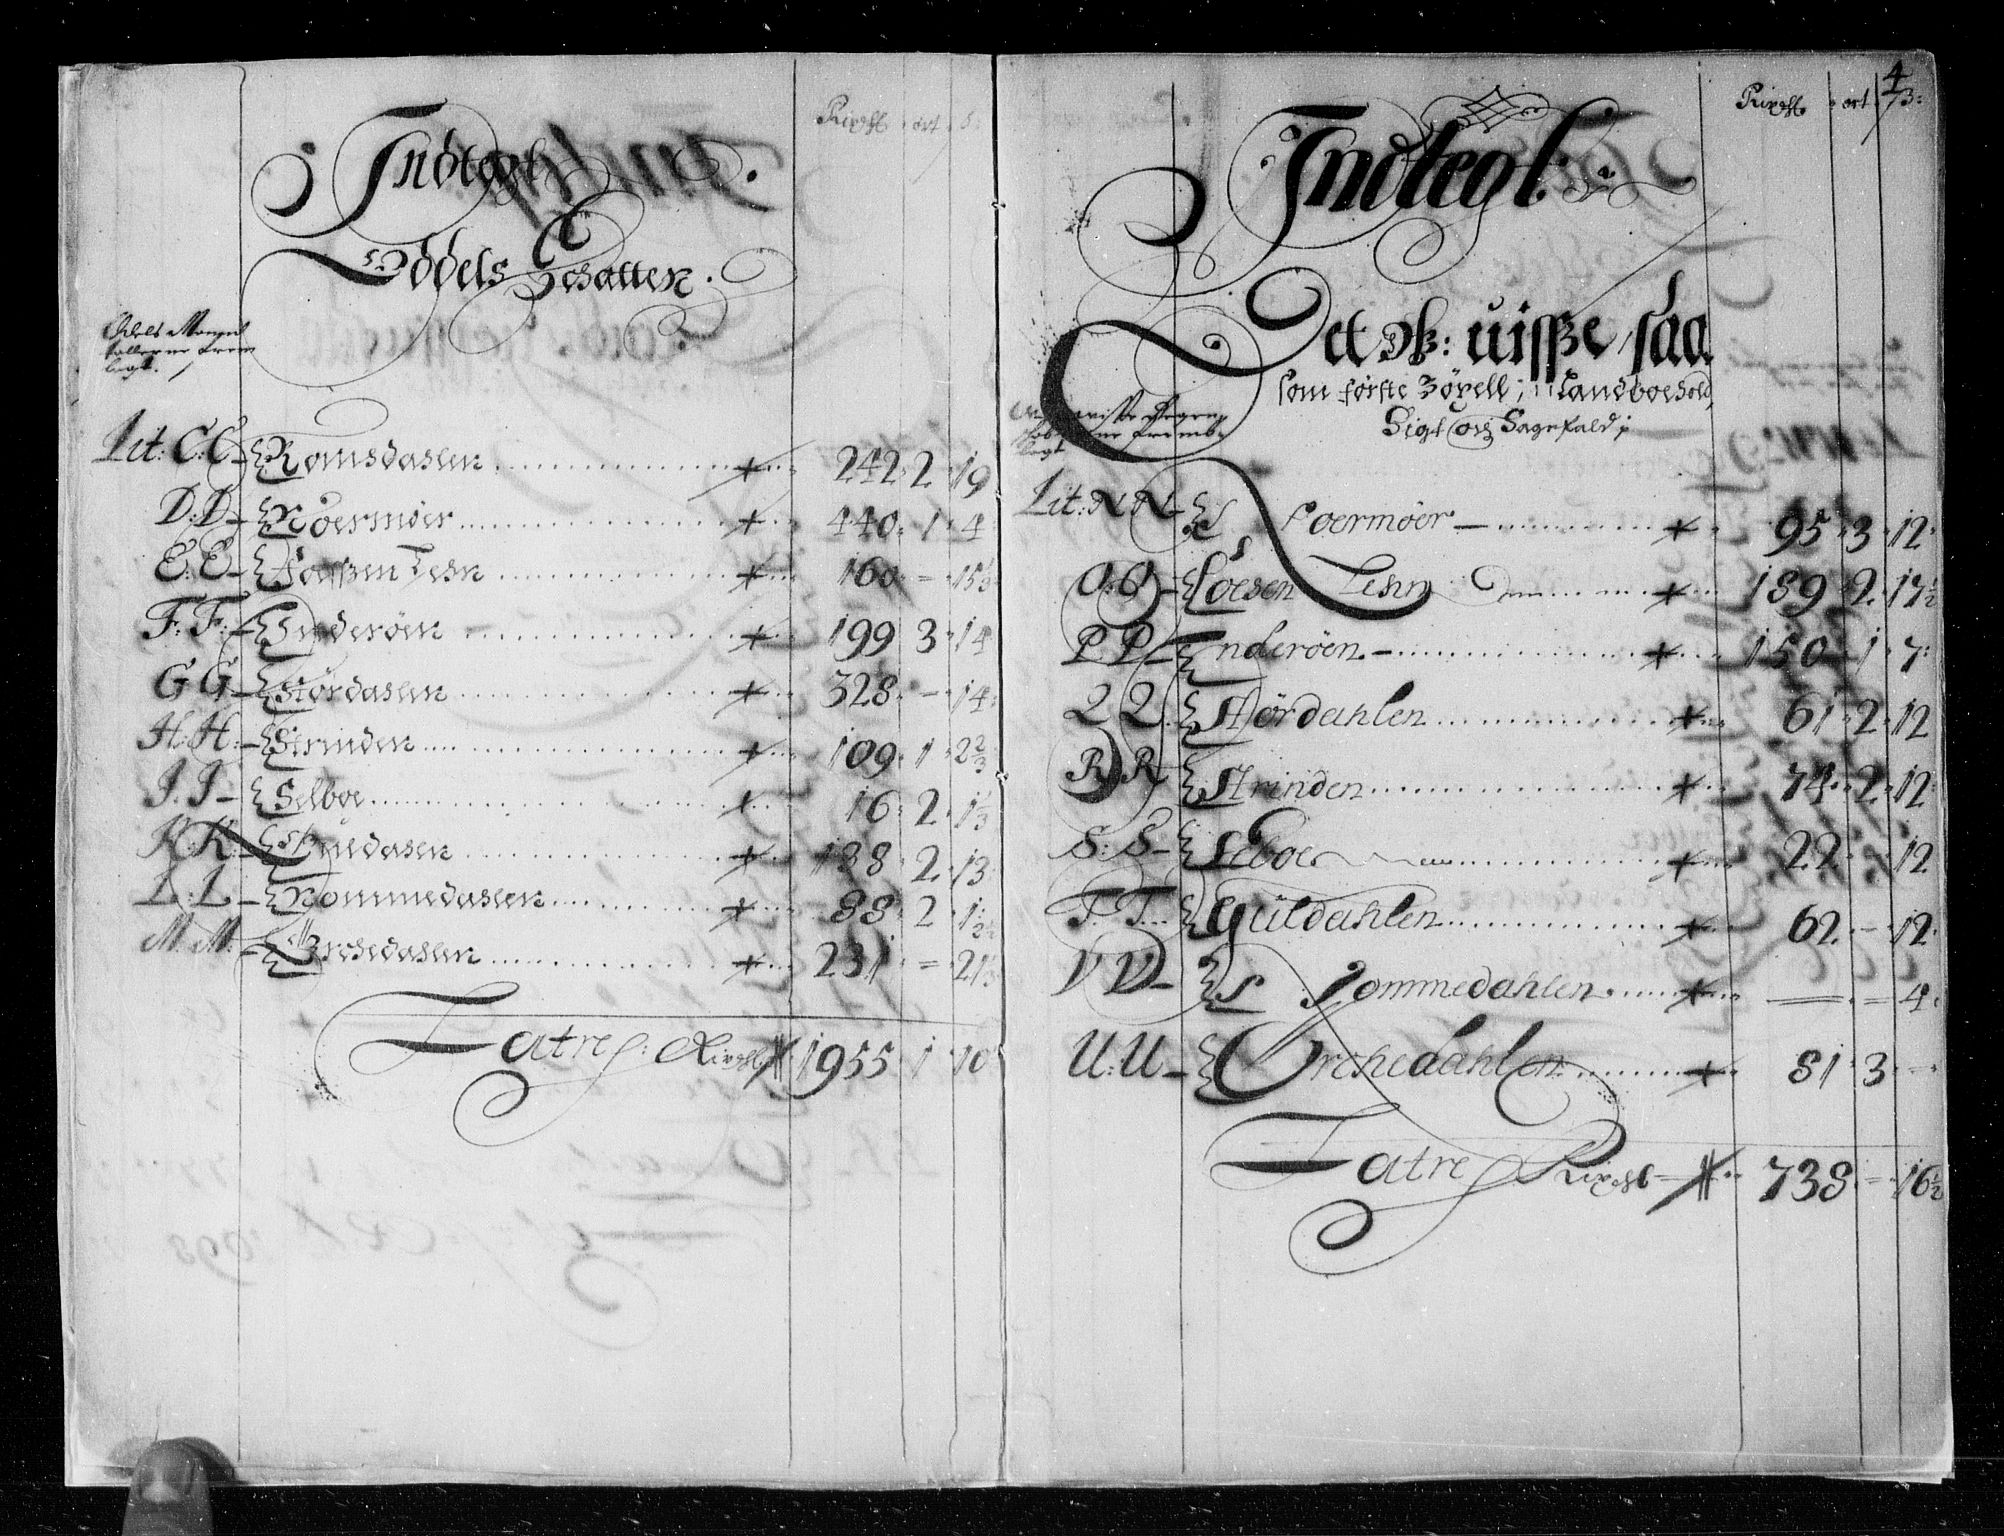 Rixdlr. ort. s.
Indtegt
Oddels Schatten.
Odels Mangel
tallerne frem
lagt.
Lit: C: C Romsdalen 242 · 2 · 19
D: D Noermøer 440 · 1 · 4
E: E Fossen Lehn 160 - 15½
F: F: Inderøen 199 3 14
G G Størdalen 328 - 14
H: H: Strinden 109 · 1 · 2⅔
I. I Selboe 16 · 2 · 1⅓
K: K: Guldalen 138 · 2 · 13
L: L Nommedalen 88 · 2 · 1½
M: M: Orchedalen 231 = 21⅓
Latres: Rixdlr 1955 1 10
4
Rixdlr. ort. s:
Indtegt.
Det uisse saa
som første bøxell, Landboehold,
Sigt och Sagefald;
lagt
Lit: N N Noermøer 95 · 3 · 12
O: O Fosen Lehn 189 · 2 · 17½
P P Inderøen 150 - 1 · 7
Q Q Størdahlen 61 · 2 · 12
R R Strinden 74 · 2 · 12
S: S Selboe 22 - 12
T T Guldahlen 62 - 12
V V Nommedahlen = = 4
U: U Orchedahlen 81 · 3 -
Latres Rixdlr 738 = 16½